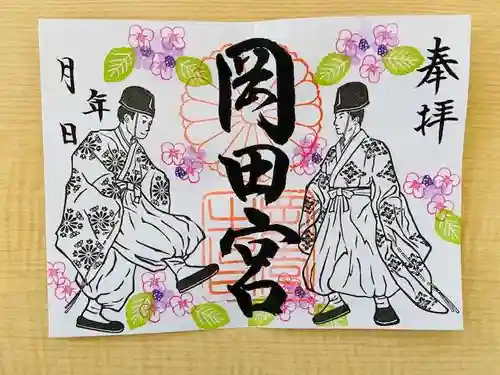 奉拝
岡田宮
年
月
日